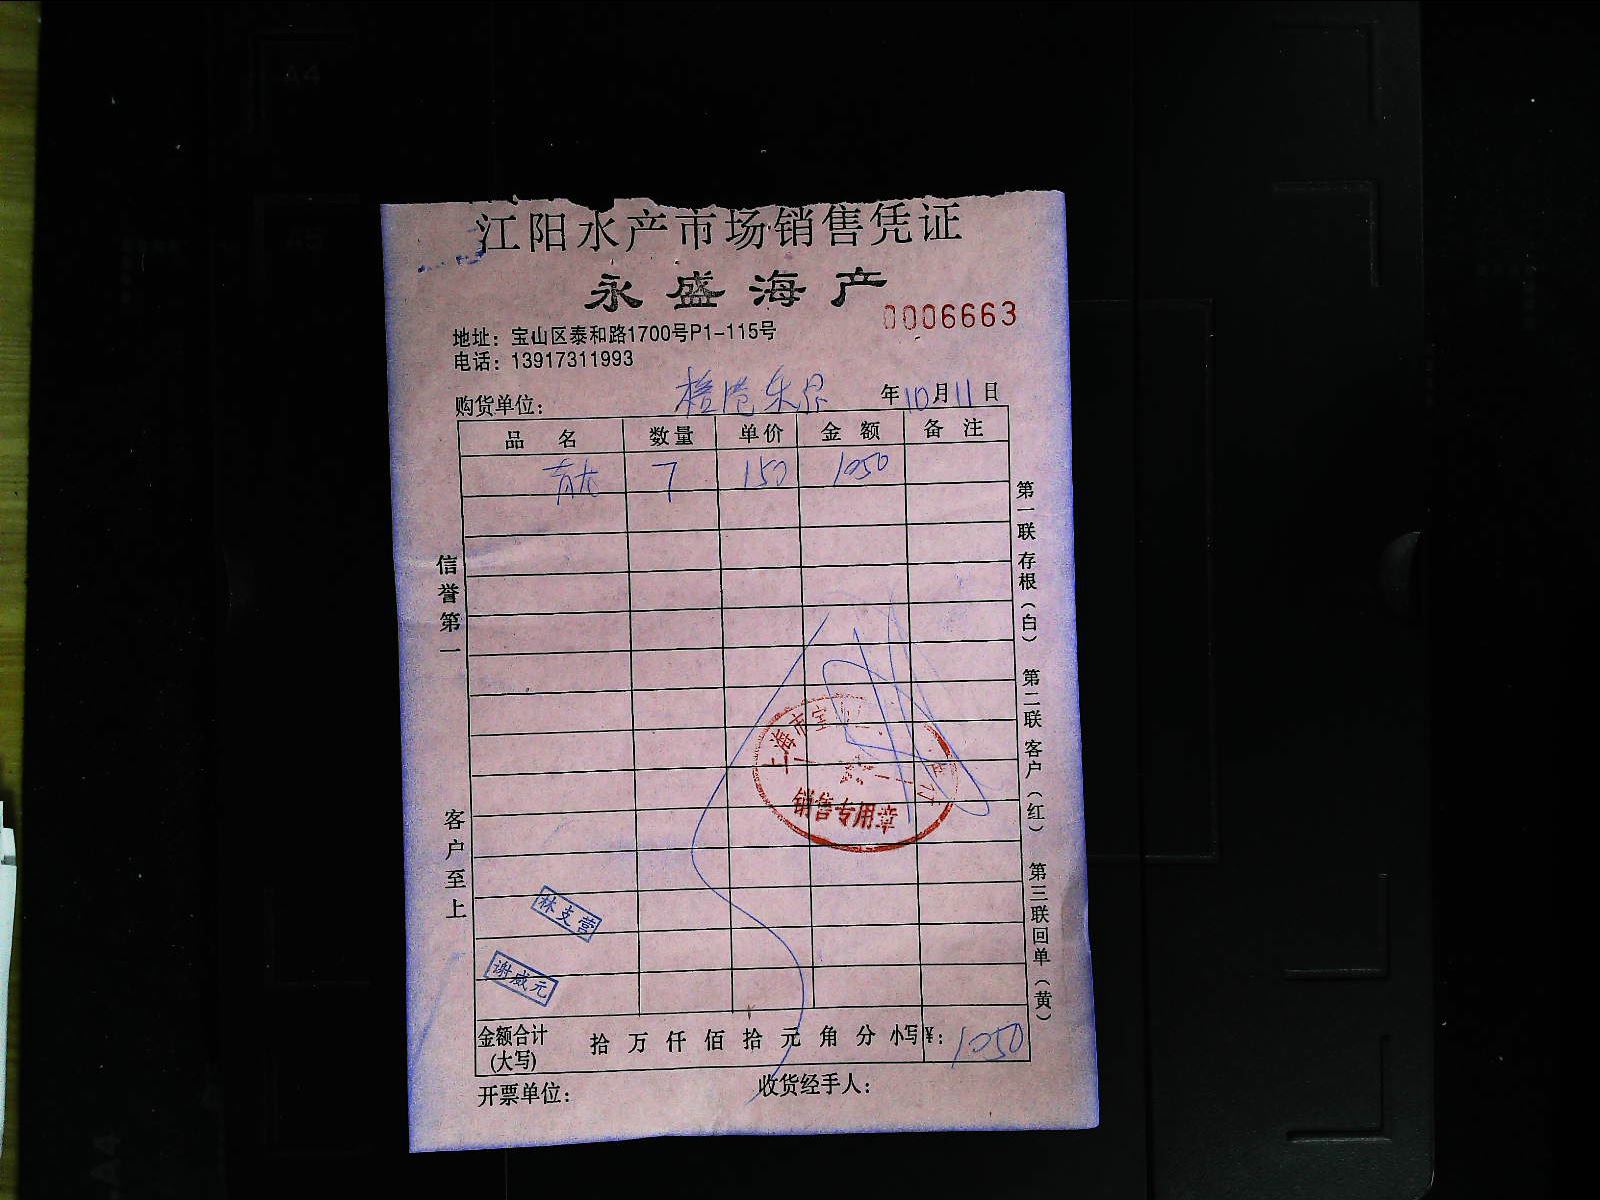 江阳水产市场销售凭证
永盛海产
0006663
地址：宝山区泰和路1700号P1-115号
电话：13917311993
购货单位： 年10月11日
品名 数量 单价 金额 备注
青龙 7 150 1050
信誉第一
客户至上
第一联 存根（白） 第二联 客户（红） 第三联 回单（黄）
上海市宝
销售专用章
林支营
谢威元
金额合计（大写） 拾 万 仟 佰 拾 元 角 分 小写￥：1050
开票单位： 收货经手人：